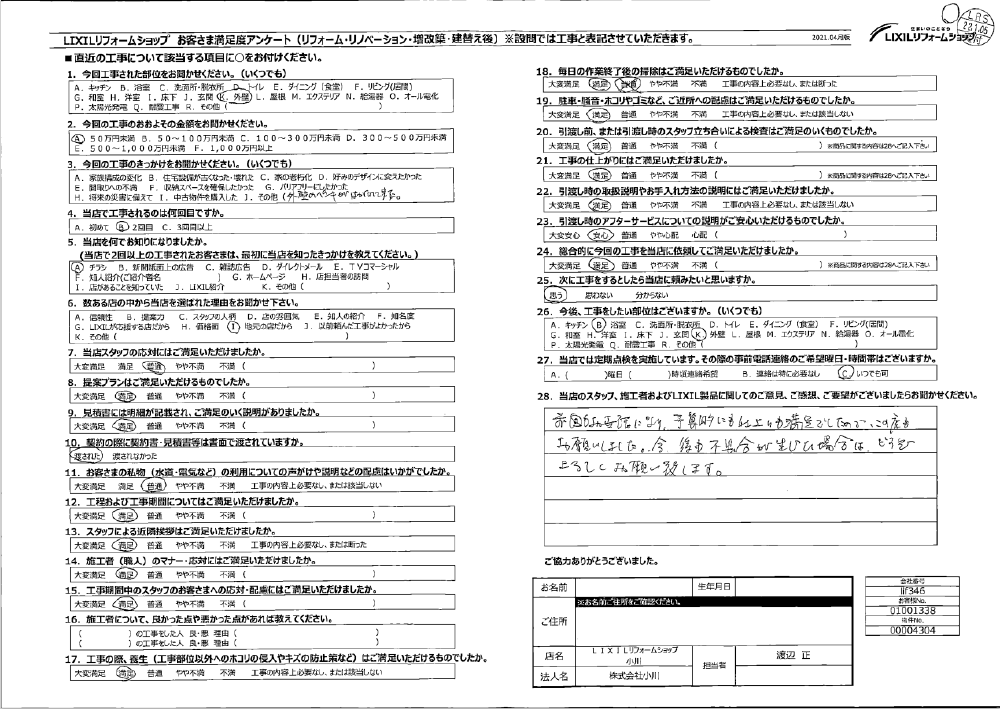 LIXILリフォームショップ お客さま満足度アンケート（リフォーム・リノベーション・増改築・建替え後）※設問では工事と表記させていただきます。
2021.04月版
住まいのことなら
LIXILリフォームショップ
■直近の工事について該当する項目に○をお付けください。
1．今回工事された部位をお聞かせください。（いくつでも）
A．キッチン B．浴室 C．洗面所・脱衣所 D．トイレ E．ダイニング（食堂） F．リビング(居間)
G．和室 H．洋室 I．床下 J．玄関 K．外壁 L．屋根 M．エクステリア N．給湯器 O．オール電化
P．太陽光発電 Q．耐震工事 R．その他（
2．今回の工事のおおよその金額をお聞かせください。
A．50万円未満 B．50～100万円未満 C．100～300万円未満 D．300～500万円未満
E．500～1,000万円未満 F．1,000万円以上
3．今回の工事のきっかけをお聞かせください。（いくつでも）
A．家族構成の変化 B．住宅設備が古くなった・壊れた C．家の老朽化 D．好みのデザインに変えたかった
E．間取りへの不満 F．収納スペースを確保したかった G．バリアフリーにしたかった
H．将来の災害に備えて I．中古物件を購入した J．その他（
4．当店で工事されるのは何回目ですか。
A．初めて B．2回目 C．3回目以上
5．当店を何でお知りになりましたか。
（当店で2回以上の工事をされたお客さまは、最初に当店を知ったきっかけを教えてください。）
A．チラシ B．新聞紙面上の広告 C．雑誌広告 D．ダイレクトメール E．TVコマーシャル
F．知人紹介(ご紹介者名 ） G．ホームページ H．店担当者の訪問
I．店があることを知っていた J．LIXIL紹介 K．その他（ ）
6．数ある店の中から当店を選ばれた理由をお聞かせ下さい。
A．信頼性 B．提案力 C．スタッフの人柄 D．店の雰囲気 E．知人の紹介 F．知名度
G．LIXILが応援する店だから H．価格面 I．地元の店だから J．以前頼んだ工事がよかったから
K．その他（ ）
7．当店スタッフの応対にはご満足いただけましたか。
大変満足 満足 普通 やや不満 不満 （ ）
8．提案プランはご満足いただけるものでしたか。
大変満足 満足 普通 やや不満 不満 （ ）
9．見積書には明細が記載され、ご満足のいく説明がありましたか。
大変満足 満足 普通 やや不満 不満 （ ）
10．契約の際に契約書・見積書等は書面で渡されていますか。
渡された 渡されなかった
11．お客さまの私物（水道・電気など）の利用についての声がけや説明などの配慮はいかがでしたか。
大変満足 満足 普通 やや不満 不満 工事の内容上必要なし、または該当しない
12．工程および工事期間についてはご満足いただけましたか。
大変満足 満足 普通 やや不満 不満 （ ）
13．スタッフによる近隣挨拶はご満足いただけましたか。
大変満足 満足 普通 やや不満 不満 工事の内容上必要なし、または断った
14．施工者（職人）のマナー・応対にはご満足いただけましたか。
大変満足 満足 普通 やや不満 不満 （ ）
15．工事期間中のスタッフのお客さまへの応対・配慮にはご満足いただけましたか。
大変満足 満足 普通 やや不満 不満 （ ）
16．施工者について、良かった点や悪かった点があれば教えてください。
（ ）の工事をした人 良・悪 理由（ ）
（ ）の工事をした人 良・悪 理由（ ）
17．工事の際、養生（工事部位以外へのホコリの侵入やキズの防止策など）はご満足いただけるものでしたか。
大変満足 満足 普通 やや不満 不満 工事の内容上必要なし、または該当しない
18．毎日の作業終了後の掃除はご満足いただけるものでしたか。
大変満足 満足 普通 やや不満 不満 工事の内容上必要なし、または断った
19．駐車・騒音・ホコリやゴミなど、ご近所への配慮はご満足いただけるものでしたか。
大変満足 満足 普通 やや不満 不満 工事の内容上必要なし、または該当しない
20．引渡し前、または引渡し時のスタッフ立ち合いによる検査はご満足のいくものでしたか。
大変満足 満足 普通 やや不満 不満 （ ）※商品に関する内容は28へご記入下さい
21．工事の仕上がりにはご満足いただけましたか。
大変満足 満足 普通 やや不満 不満 （ ）※商品に関する内容は28へご記入下さい
22．引渡し時の取扱説明やお手入れ方法の説明にはご満足いただけましたか。
大変満足 満足 普通 やや不満 不満 工事の内容上必要なし、または該当しない
23．引渡し時のアフターサービスについての説明がご安心いただけるものでしたか。
大変安心 安心 普通 やや心配 心配 （ ）
24．総合的に今回の工事を当店に依頼してご満足いただけましたか。
大変満足 満足 普通 やや不満 不満 （ ）※商品に関する内容は28へご記入下さい
25．次に工事をするとしたら当店に頼みたいと思いますか。
思う 思わない 分からない
26．今後、工事をしたい部位はございますか。（いくつでも）
A．キッチン B．浴室 C．洗面所・脱衣所 D．トイレ E．ダイニング（食堂） F．リビング(居間)
G．和室 H．洋室 I．床下 J．玄関 K．外壁 L．屋根 M．エクステリア N．給湯器 O．オール電化
P．太陽光発電 Q．耐震工事 R．その他（
27．当店では定期点検を実施しています。その際の事前電話連絡のご希望曜日・時間帯はございますか。
A．（ ）曜日（ ）時頃連絡希望 B．連絡は特に必要なし C．いつでも可
28．当店のスタッフ、施工者およびLIXIL製品に関してのご意見、ご感想、ご要望がございましたらお聞かせください。
前回もお世話になり、予算的にも仕上りも満足でしたので、この度も
お願いしました。今後も不具合が生じた場合は、どうぞ
よろしくお願い致します。
ご協力ありがとうございました。
お名前
生年月日
※お名前ご住所をご確認ください。
ご住所
店名
LIXILリフォームショップ
小川
担当者
渡辺 正
法人名
株式会社小川
会社番号
lif346
お客様No.
01001338
物件No.
00004304